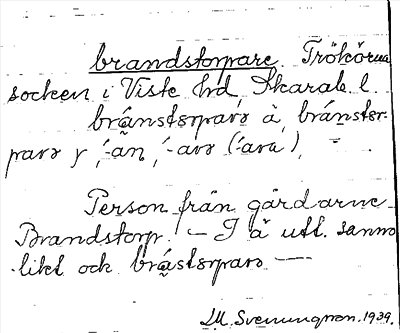 brandstorpare Trökörna
socken i Viste hd Skarab. l.
bránstorparə à, bránstor-
parə y, ´-an, ´-arə (´-ara),
Person från gårdarne
Brandstorp. – I ä utt. sanno-
likt och brástorparə —
M. Svenungsson. 1939.